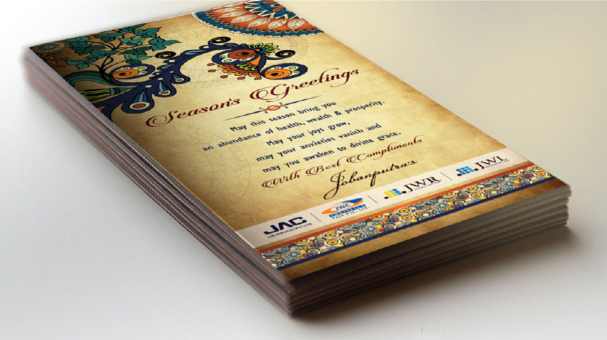 Season's Greetings
May this season bring you
an abundance of health, wealth & prosperity.
May your joys grow,
may your anxieties vanish and
may you awaken to divine grace.
With Best Compliments
Jobanputra's
JAC
JWR
JWL